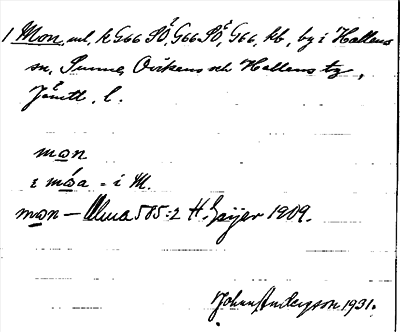 1 Mon, ml, k G66 SÖ, G66 SÖ, G66, kb, by i Hallens
sn, Sunne, Oviken och Hallens tg,
Jämtl. l.
mɷn
i mɷ́a = i M.
mɷn — Ulma 585:2 H. Geijer 1909.
Johan Anderson 1931.